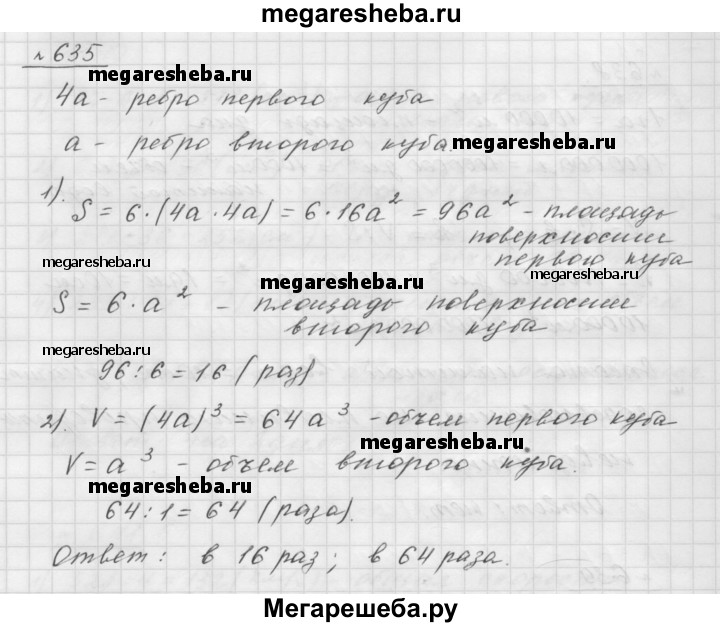 megaresheba.ru
№ 635
megaresheba.ru
4a - ребро первого куба
a - ребро второго куба
megaresheba.ru
1).
S = 6·(4a·4a) = 6·16a² = 96a² - площадь
поверхности
первого куба
megaresheba.ru
megaresheba.ru
megaresheba.ru
S = 6·a² - площадь поверхности
второго куба
megaresheba.ru
96:6=16 (раз)
2). V = (4a)³ = 64a³ - объем первого куба
megaresheba.ru
V = a³ - объем второго куба.
megaresheba.ru
64:1 = 64 (раза).
Ответ: в 16 раз; в 64 раза.
Мегарешеба.ру